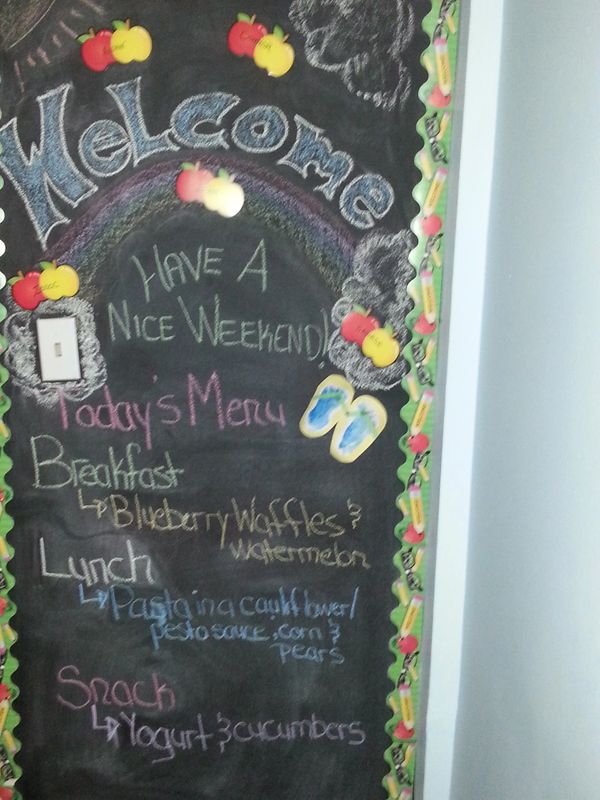 Welcome
HAVE A
NICE WEEKEND!
Today's Menu
Breakfast
Blueberry Waffles &
watermelon
Lunch
Pasta in a cauliflower/
pesto sauce, corn &
pears
Snack
Yogurt & cucumbers